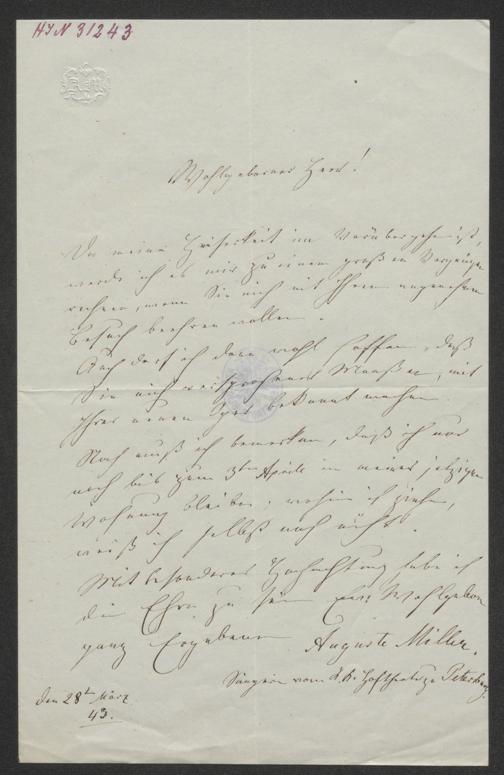 HIN 31243
AM
Wohlgeborner Herr!
Da meine Heiserkeit im Vorübergehen ist,
werde ich es mir zu einem großen Vergnügen
rechnen, wenn Sie mich mit Ihrem angenehmen
Besuch beehren wollen.
Auch darf ich dann wohl hoffen, daß
Sie mich versprochener Maaßen, mit
Ihrer neuen bekannt machen.
Noch muß ich bemerken, daß ich nur
noch bis zum 3ten April in meiner jetzigen
Wohnung bleibe; wohin ich ziehe,
weiß ich selbst noch nicht.
Mit besonderer Hochachtung habe ich
die Ehre zu sein Wohlgeborn
ganz Ergebene Auguste Miller.
Sängerin vom K.K. Hoftheater zu Petersburg
den 28t März
43.